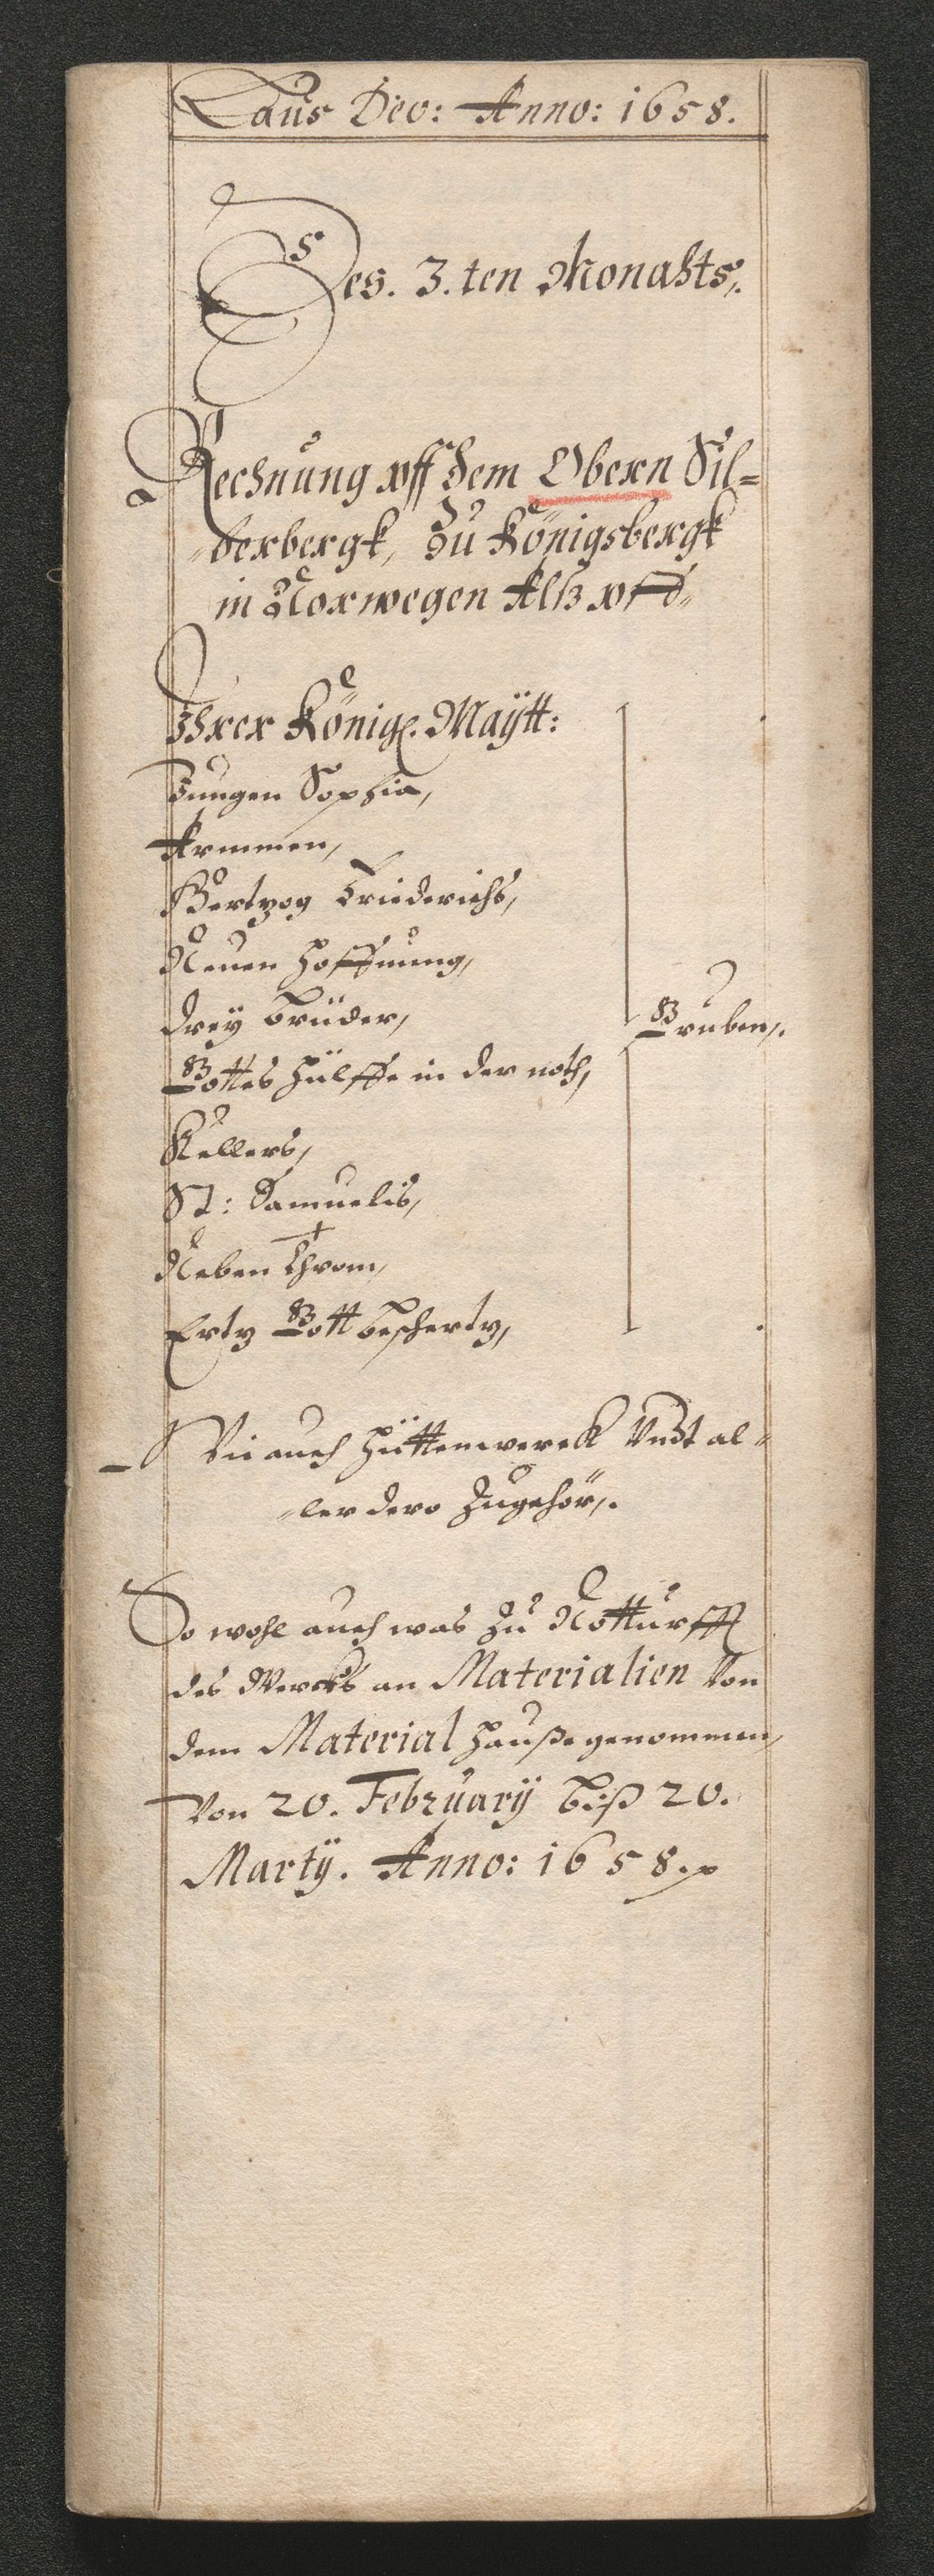 Laus Deo: Anno: 1658.
Des. 3.ten Monahts,.
Rechnung vff dem Obern Sil=
berbergk, Zu Königsbergk
in Norwegen Alß vff
Ihrer Königl. Maytt:
Jungen Sophia,
Armmen,
Hertzog Friederichs,
Neuen Hoffnung,
Drey Brüder,
Gottes Hülffe in der noth,
Gruben,.
Kellers,
St: Samuelis,
Neben Throm,
Ertz Gott bescherts,
Wie auch Hüttenwerck Vndt al=
ler dero Zugehör,.
So wohl auch was Zu Notturfft
des Wercks an Materialien Von
dem Material Hauße genommen,
Von 20. February biß 20.
Martÿ. Anno: 1658.